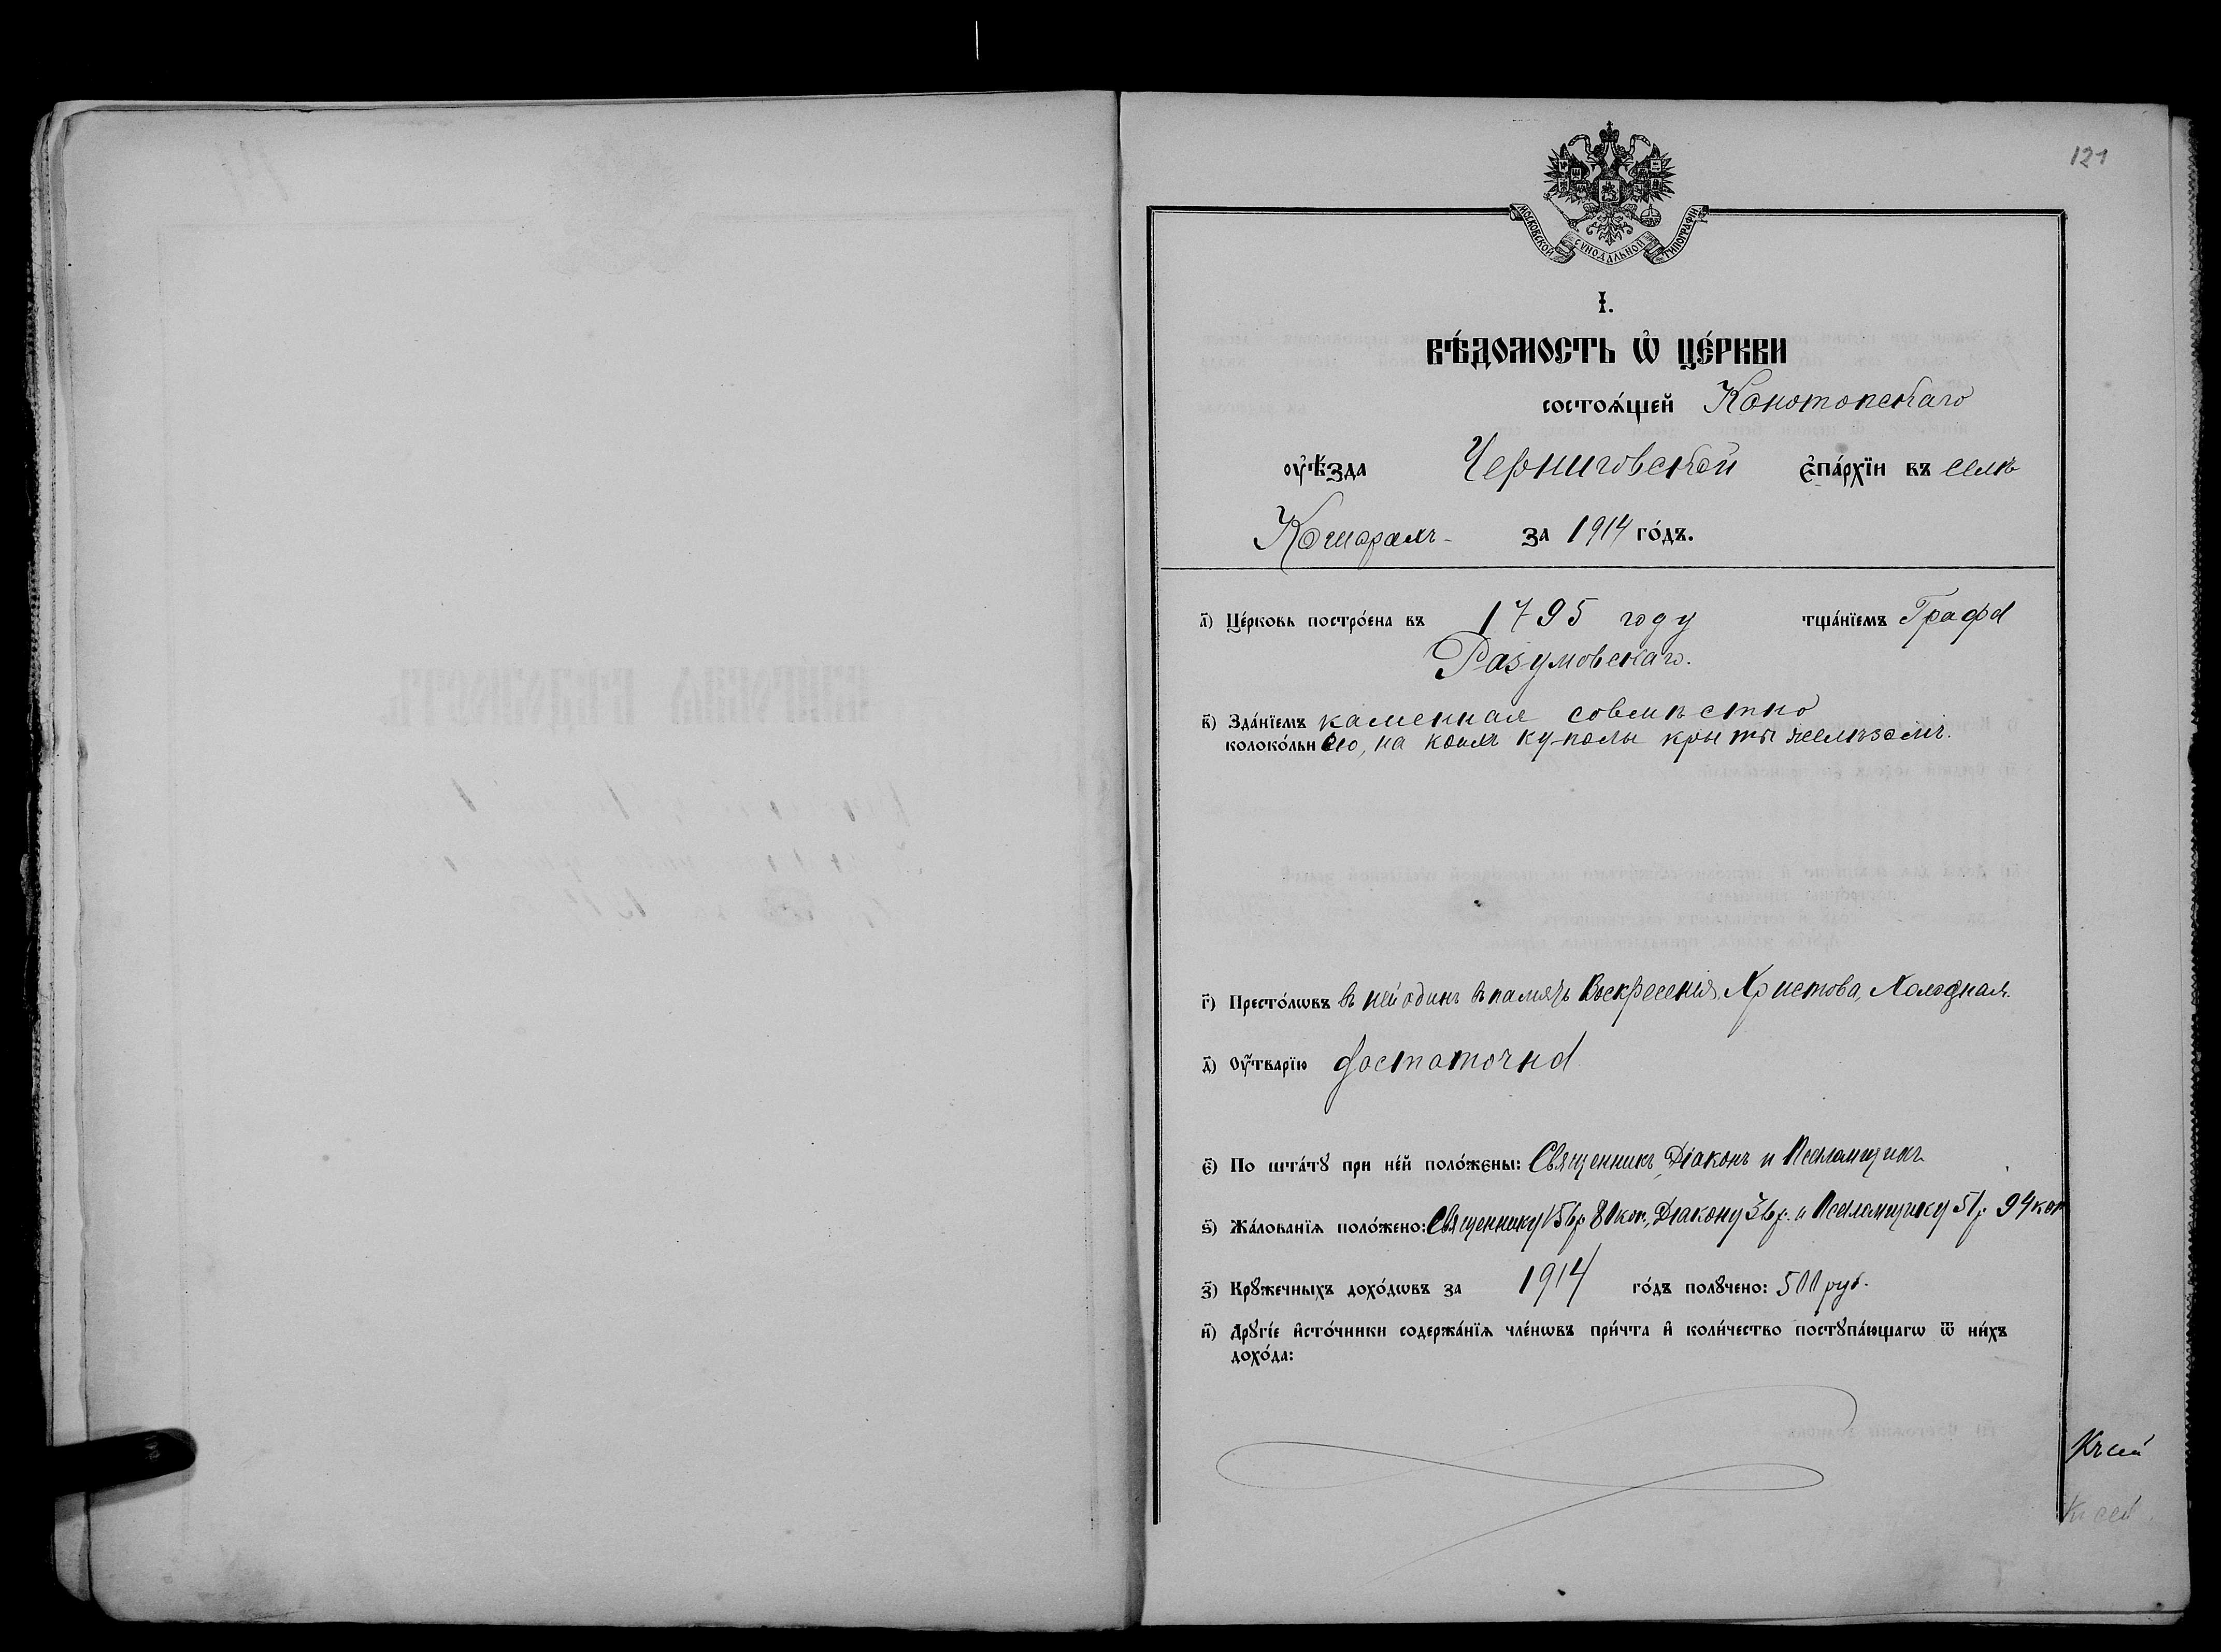 121
МОСКОВСКОЙ СѴНОДАЛЬНОЙ ТИПОГРАФІИ
І.
ВѢ́ДОМОСТЬ Ѡ҆ ЦЕ́РКВИ
состоѧ́щей Конотопскаго
ᲂу҆ѣ́зда Черниговской є҆па́рхїи въ селѣ
Кошарахъ за 1914 го́дъ.
а҃) Це́рковь постро́ена въ 1795 году тща́нїемъ Графа
Разумовскаго.
в҃) Зда́нїемъ каменная совмѣстно
колоко́льнею, на коихъ куполы крыты желѣзомъ.
г҃) Престо́лѡвъ въ ней одинъ въ память Воскресенія Христова, Холодная.
д҃) Оу҆́тварїю достаточна
є҃) По шта́тꙋ при не́й поло́жены: Священникъ, Діаконъ и Псаломщикъ
ѕ҃) Жа́лованїѧ поло́жено: Священнику 156р. 80 коп., Діакону 36р. и Псаломщику 51р. 94 коп
з҃) Крꙋ́жечныхъ дохо́дѡвъ за 1914 го́дъ полꙋ́чено: 500 руб.
и҃) Дрꙋгі́е и҆сто́чники содержа́нїѧ чле́нѡвъ при́чта и҆ коли́чество постꙋпа́ющагѡ ѿ ни́хъ
дохо́да:
Къ сей
Къ сей